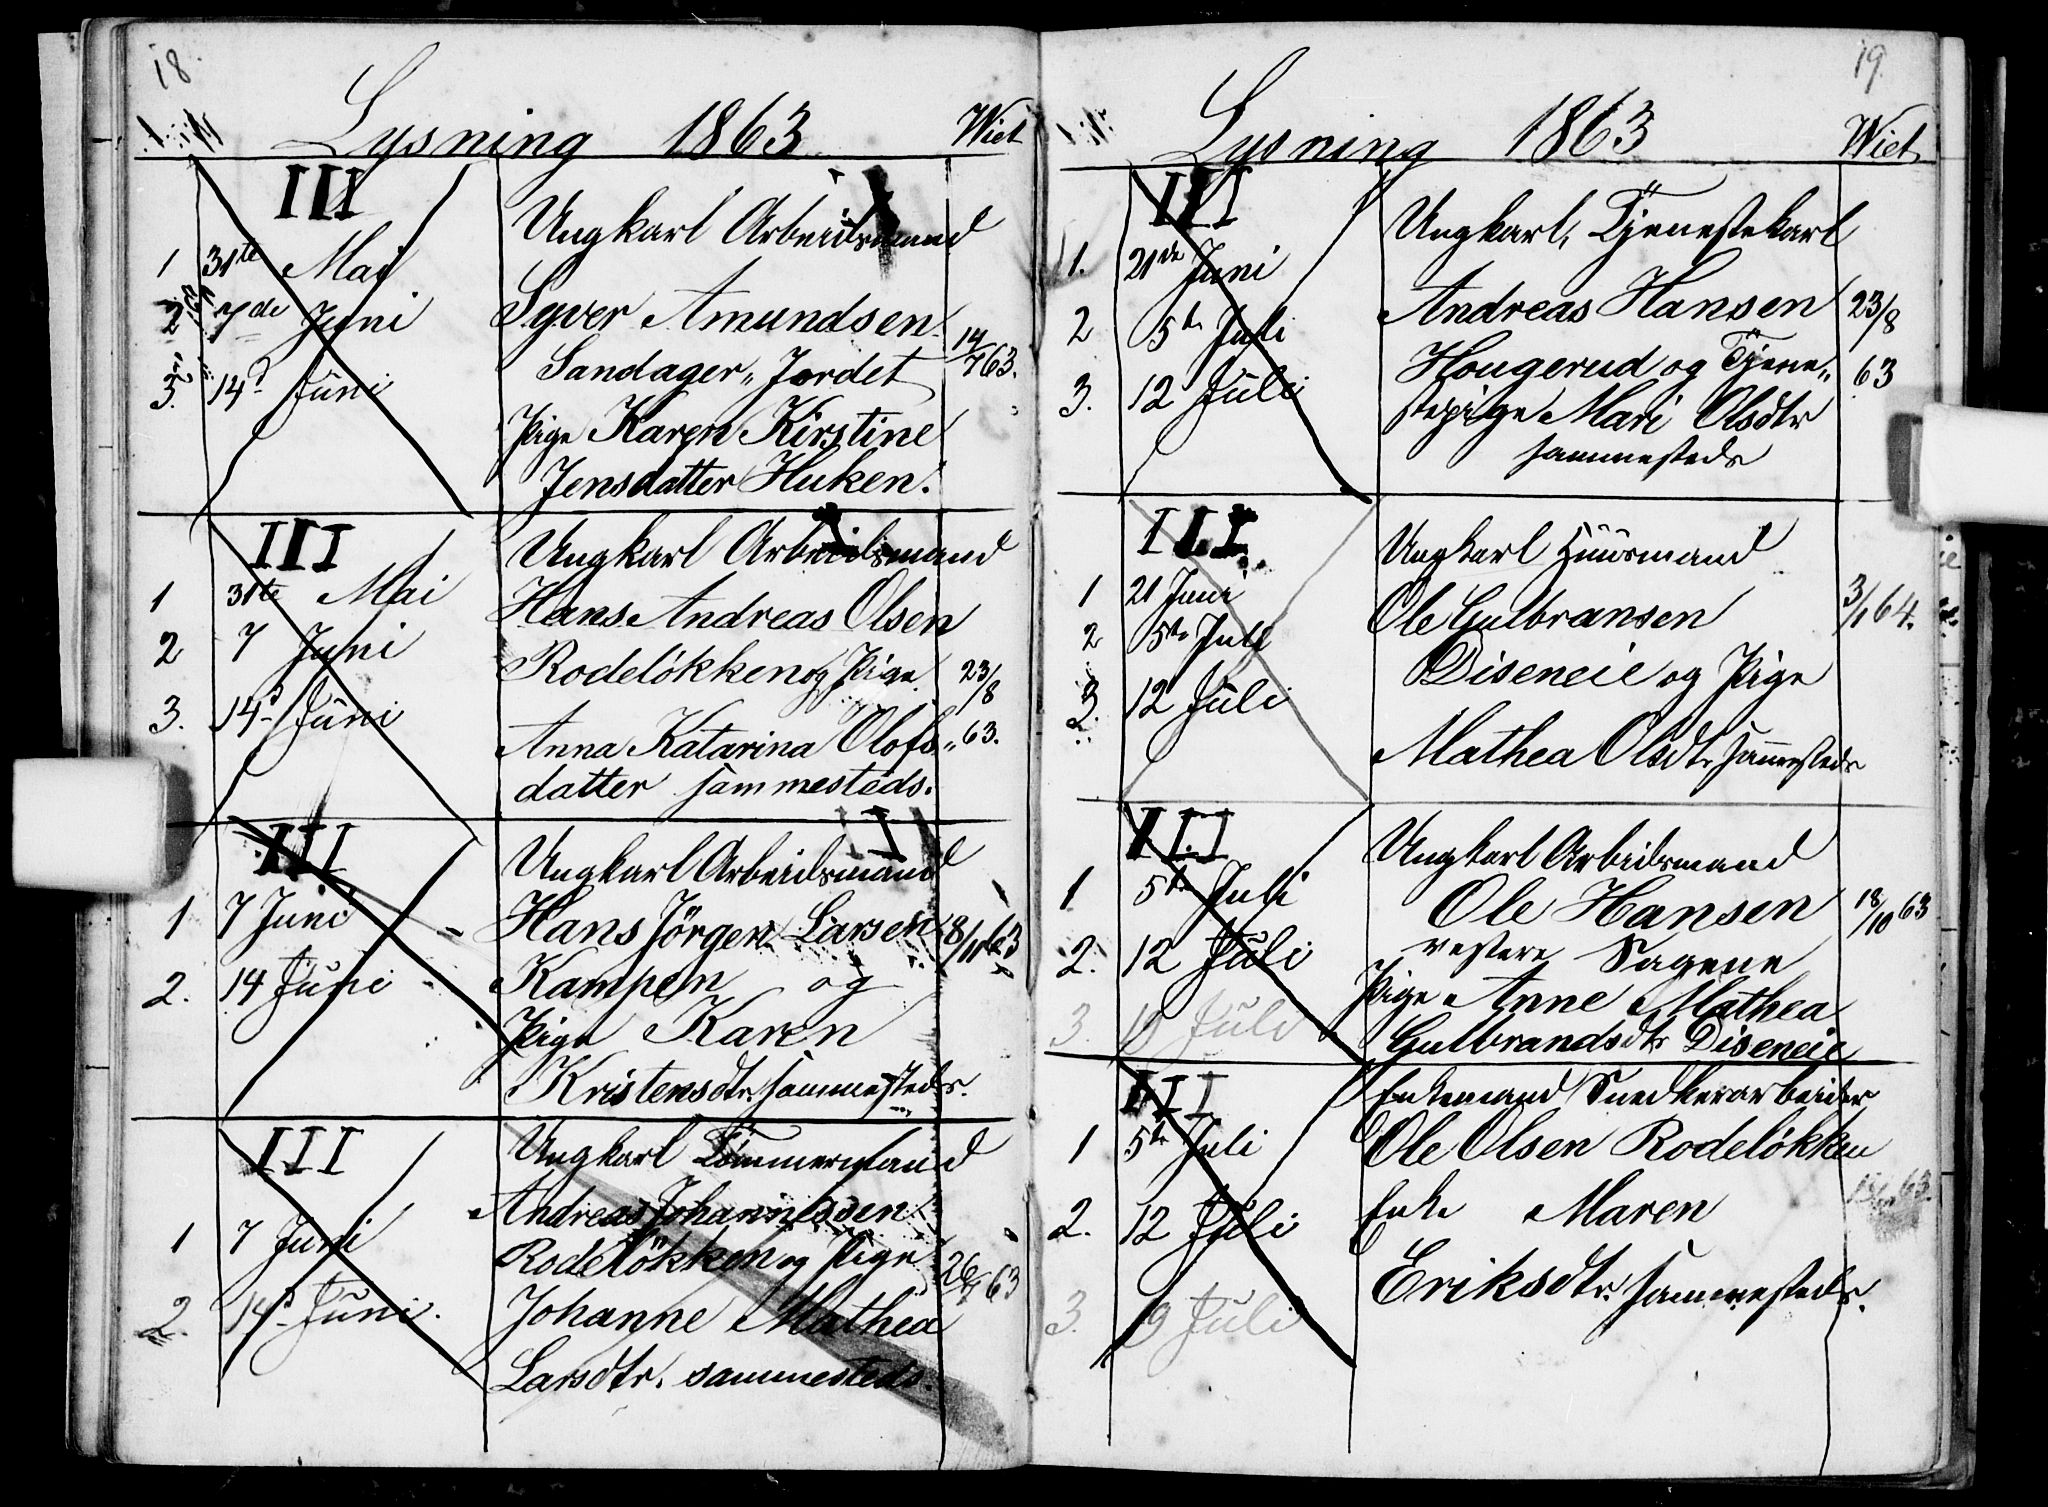 18.
Lysning 1863 Wiet
III
Ungkarl Arbeidsmand
1 31te Mai
Syver Amundsen
2 7de Juni
Sandager„ Jordet 14/7 63.
3. 14d Juni
Pige Karen Kirstine
Jensdatter Huken.
III
Ungkarl Arbeidsmand
1 31te Mai
Hans Andreas Olsen
2 7 Juni
Rodeløkken og Pige 23/8
3. 14d Juni
Anna Katarina Olofs„ 63.
datter sammesteds.
III
Ungkarl Arbeidsmand
1 7 Juni
Hans Jörgen Larsen 8/11 63
2. 14 Juni
Kampen og
Pige Karen
Kristensdtr. sammesteds.
III
Ungkarl Tömmermand
Andreas Johannessen
1 7 Juni
Rodelökken og Pige 26/7 63
2. 14d Juni.
Johanne Mathea
Larsdtr. sammesteds.
19.
Lysning 1863 Wiet
III
Ungkarl, Tjenestekarl
1. 21de Juni
Andreas Hansen 23/8
2 5te Juli
Hougerud og Tjene„ 63
3. 12 Juli
stepige Mari Olsdtr
sammesteds
III
Ungkarl Huusmand
1 21 Juni
Ole Gulbransen 3/1 64.
2 5te Juli
Diseneie og Pige
3. 12 Juli
Mathea Olsdtr sammesteds
III
Ungkarl Arbeidsmand
1 5te Juli
Ole Hansen 18/10 63
2. 12 Juli
vestere Sagene
Pige Anne Mathea
3. 19 Juli
Gulbrandsdtr Diseneie
III
Enkemand Snedkerarbeider
1 5te Juli
Ole Olsen Rodelökken
2. 12 Juli
Enke Maren 63.
Eriksdtr. sammesteds.
3. 19 Juli